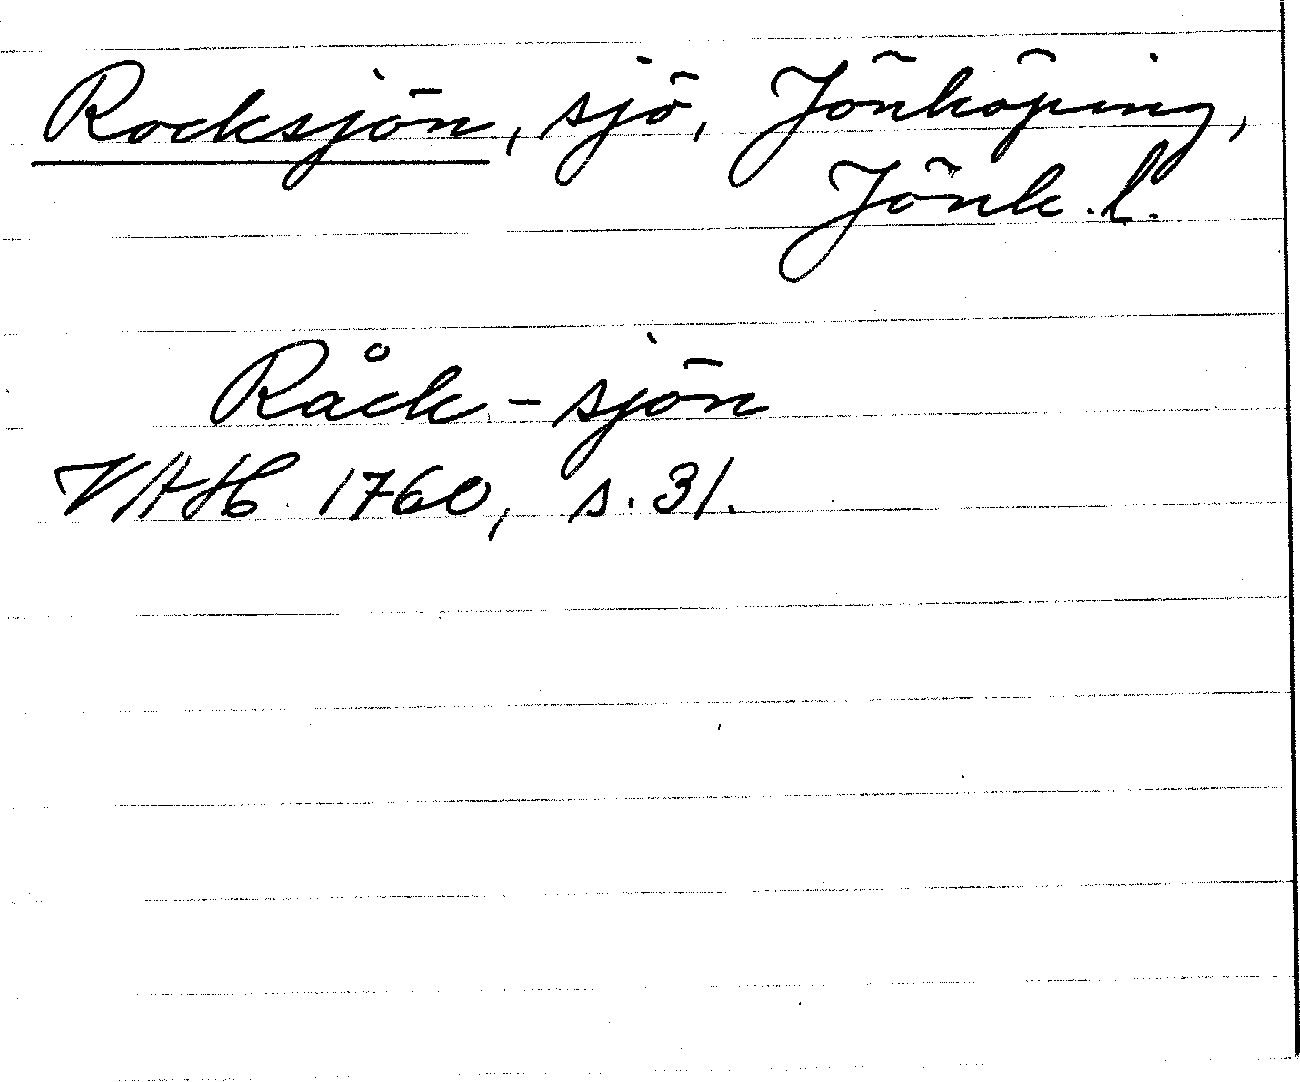 Rocksjön, sjö, Jönköping,
Jönk. l.
Råck-sjön
VAH 1760, s. 31.